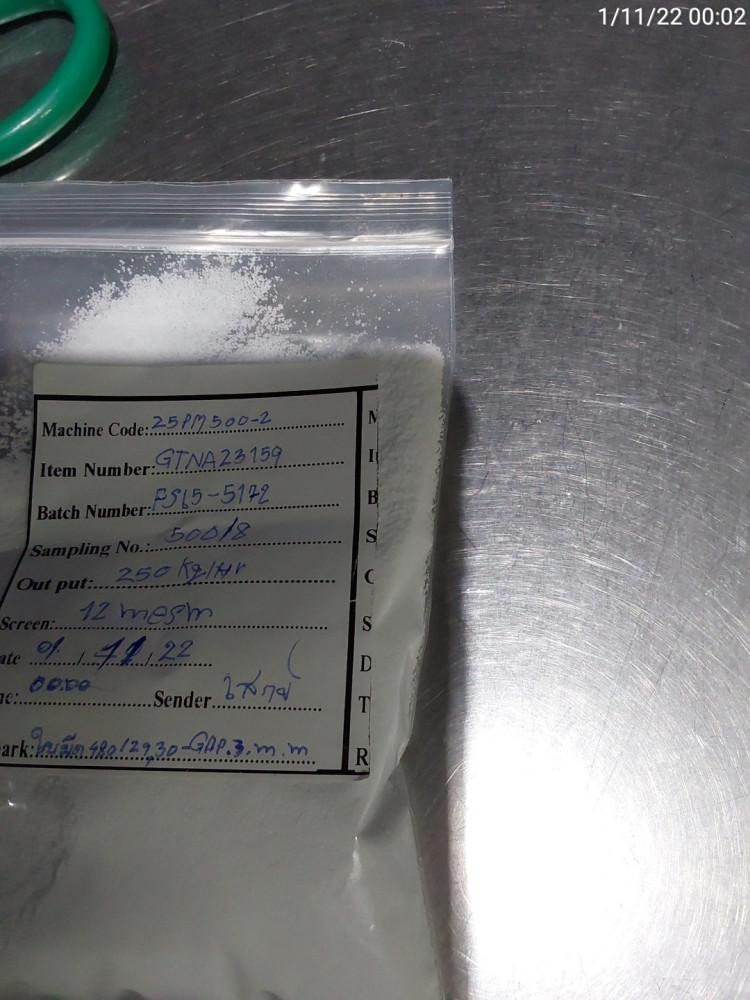 1/11/22 00:02
Machine Code: 25PM500-2
Item Number: GTNA23159
Batch Number: PS65-5172
Sampling No.: 500/8
Out put: 250 kg/Hr
Screen: 12 mesh
ate 01/11/22
me: 00:00 Sender
ark: ใบมีด 480/2930-GAP.3.m.m
M
I
B
S
O
S
D
T
R